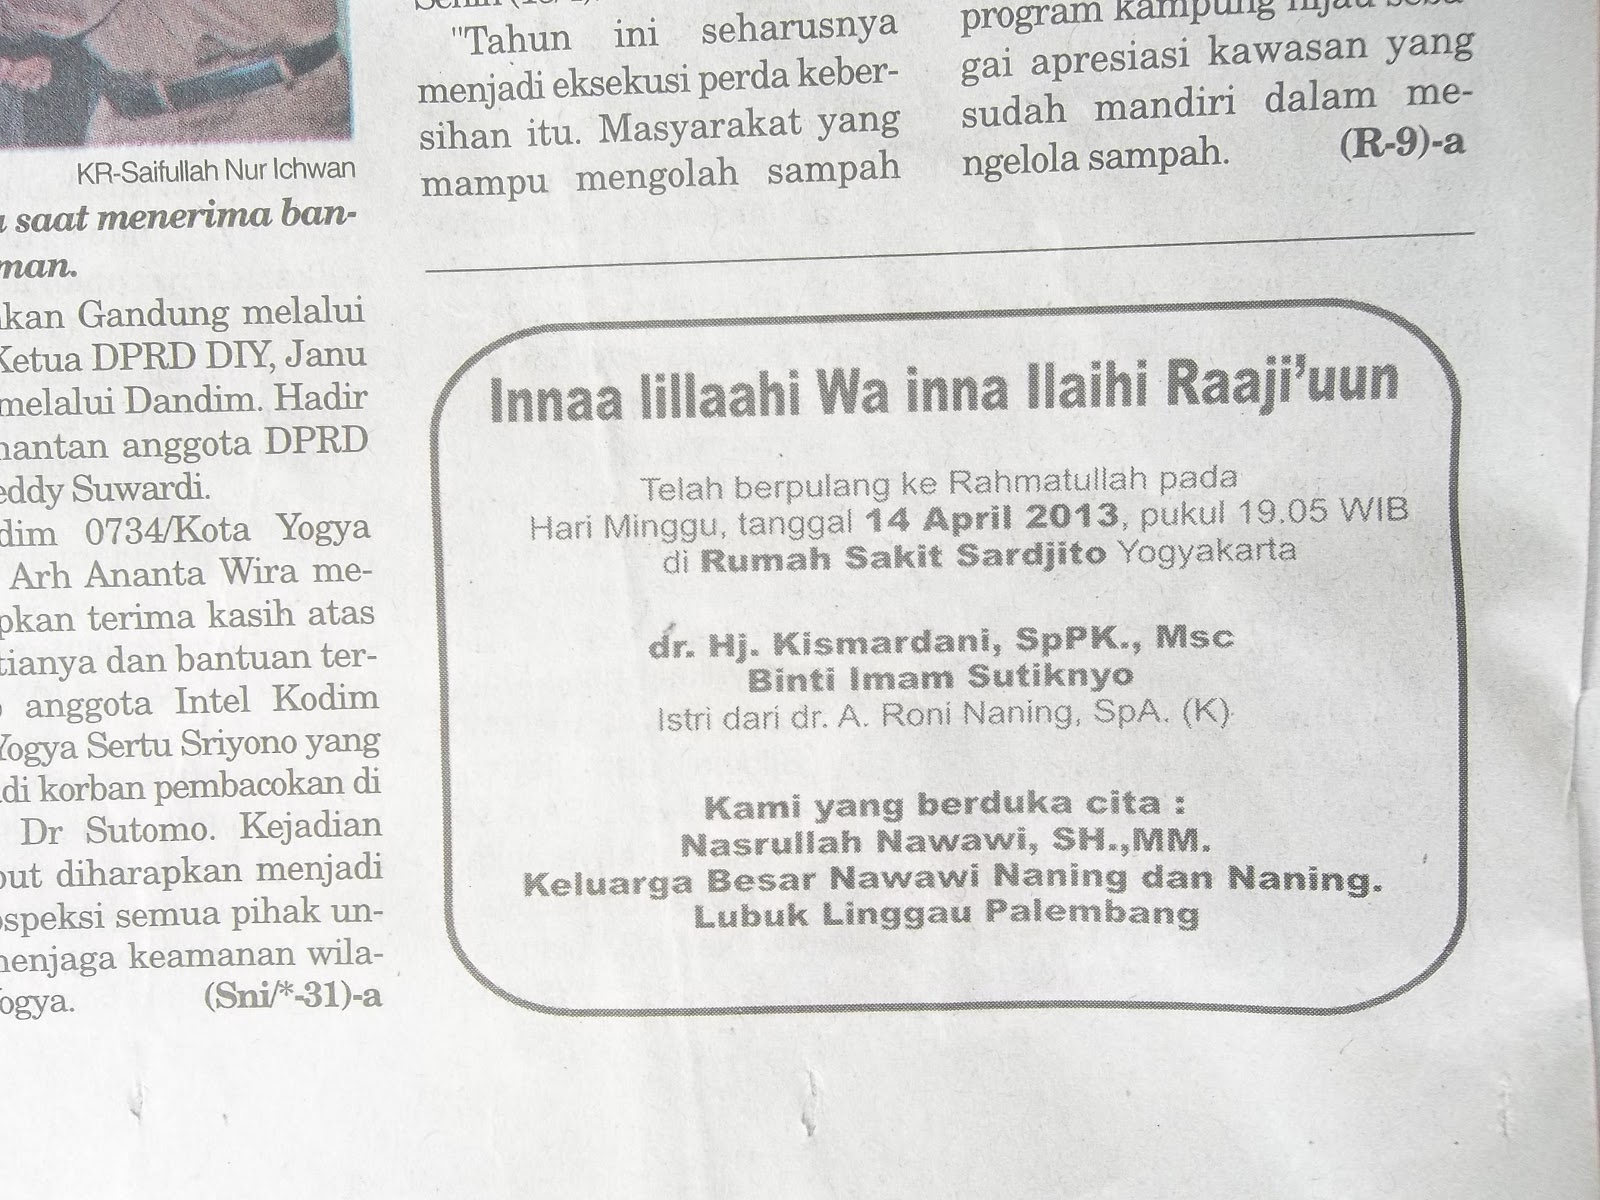 KR-Saifullah Nur Ichwan
saat menerima ban-
man.
Gandung melalui
Ketua DPRD DIY, Janu
melalui Dandim. Hadir
mantan anggota DPRD
eddy Suwardi.
dim 0734/Kota Yogya
Arh Ananta Wira me-
pkan terima kasih atas
tianya dan bantuan ter-
anggota Intel Kodim
Yogya Sertu Sriyono yang
di korban pembacokan di
Dr Sutomo. Kejadian
but diharapkan menjadi
ospeksi semua pihak un-
menjaga keamanan wila-
Yogya. (Sni/*-31)-a
"Tahun ini seharusnya
menjadi eksekusi perda keber-
sihan itu. Masyarakat yang
mampu mengolah sampah
program kampung hijau seba-
gai apresiasi kawasan yang
sudah mandiri dalam me-
ngelola sampah. (R-9)-a
Innaa lillaahi Wa inna Ilaihi Raaji'uun
Telah berpulang ke Rahmatullah pada
Hari Minggu, tanggal 14 April 2013, pukul 19.05 WIB
di Rumah Sakit Sardjito Yogyakarta
dr. Hj. Kismardani, SpPK., Msc
Binti Imam Sutiknyo
Istri dari dr. A. Roni Naning, SpA. (K)
Kami yang berduka cita :
Nasrullah Nawawi, SH.,MM.
Keluarga Besar Nawawi Naning dan Naning.
Lubuk Linggau Palembang